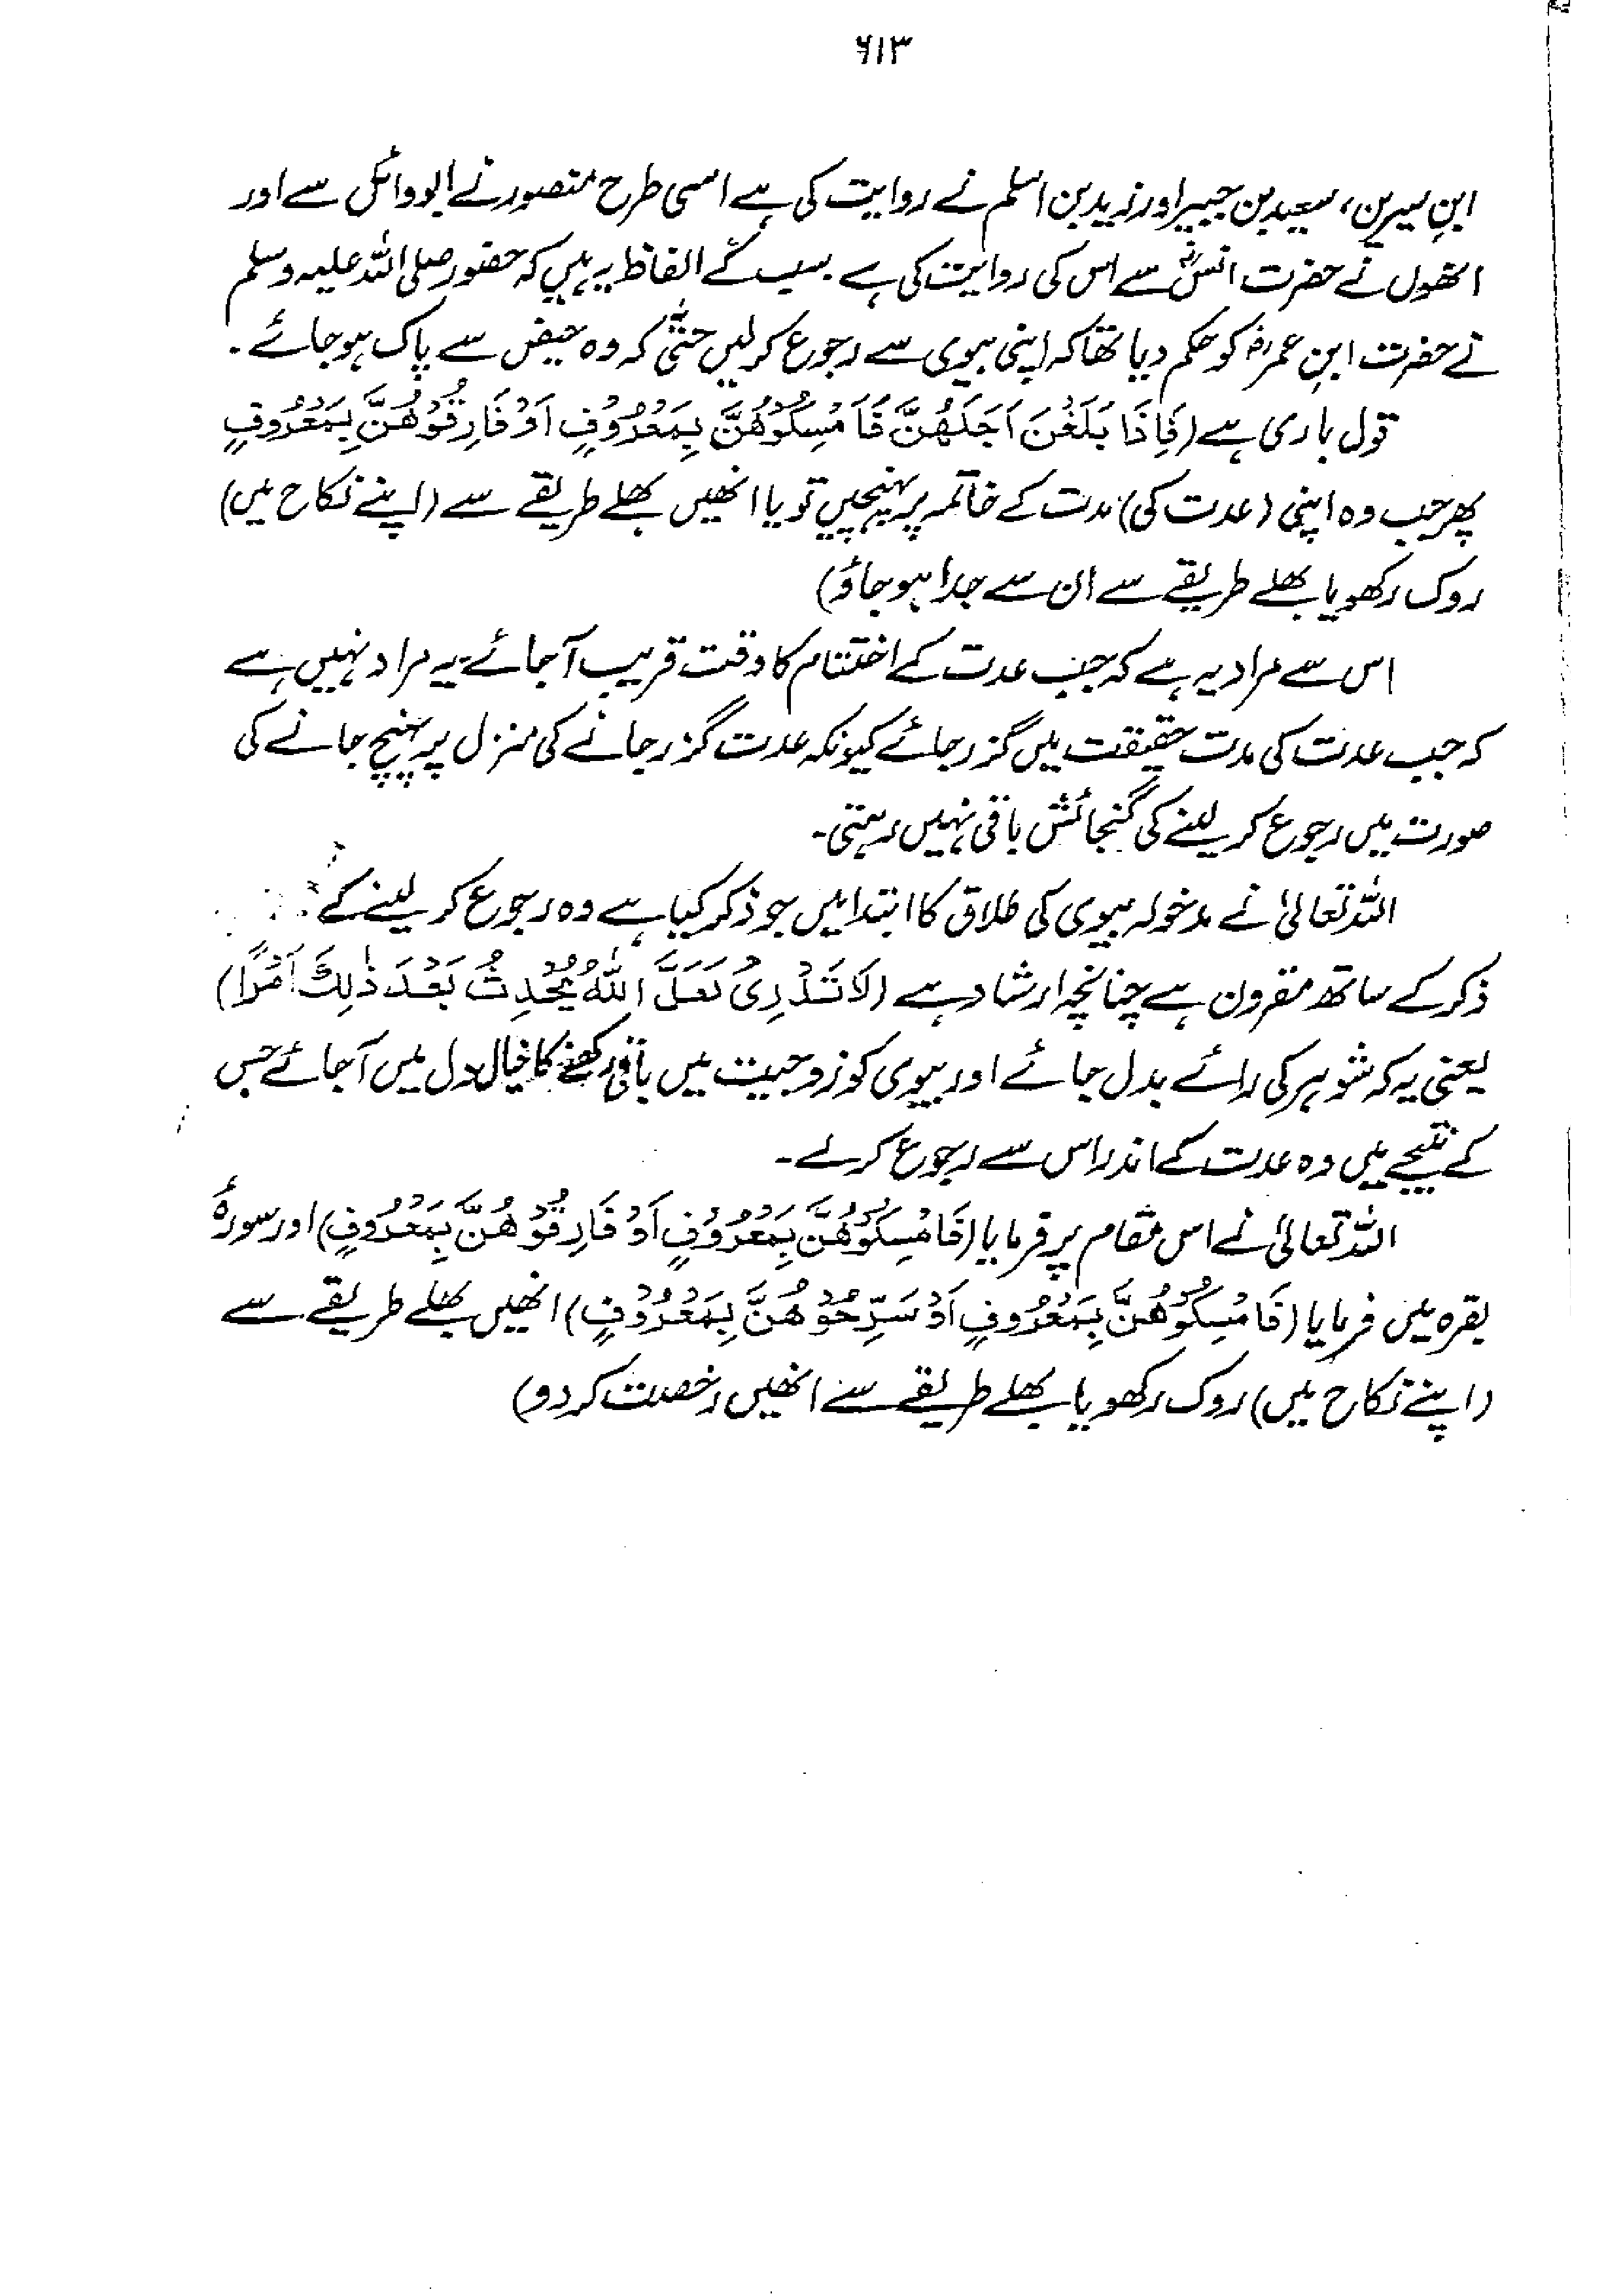 ۶۱۳
ابنِ سیرین، سعید بن جبیر اور زید بن اسلم نے روایت کی ہے اسی طرح منصور نے ابو وائل سے اور
انھوں نے حضرت انسؓ سے اس کی روایت کی ہے سب کے الفاظ یہ ہیں کہ حضور صلی اللہ علیہ وسلم
نے حضرت ابنِ عمرؓ کو حکم دیا تھا کہ اپنی بیوی سے رجوع کر لیں حتّٰی کہ وہ حیض سے پاک ہو جائے۔
قول باری ہے (فَاِذَا بَلَغْنَ اَجَلَهُنَّ فَاَمْسِكُوْهُنَّ بِمَعْرُوْفٍ اَوْ فَارِقُوْهُنَّ بِمَعْرُوْفٍ
پھر جب وہ اپنی (عدت کی) مدت کے خاتمہ پر پہنچیں تو یا انھیں بھلے طریقے سے (اپنے نکاح میں)
روک رکھو یا بھلے طریقے سے ان سے جدا ہو جاؤ)
اس سے مراد یہ ہے کہ جب عدت کے اختتام کا وقت قریب آ جائے یہ مراد نہیں ہے
کہ جب عدت کی مدت حقیقت میں گزر جائے کیونکہ عدت گزر جانے کی منزل پر پہنچ جانے کی
صورت میں رجوع کر لینے کی گنجائش باقی نہیں رہتی۔
اللہ تعالیٰ نے مدخولہ بیوی کی طلاق کا ابتدا میں جو ذکر کیا ہے وہ رجوع کر لینے کے
ذکر کے ساتھ مقرون ہے چنانچہ ارشاد ہے (لَا تَدْرِیْ لَعَلَّ اللّٰهُ یُحْدِثُ بَعْدَ ذٰلِكَ اَمْرًا)
یعنی یہ کہ شوہر کی رائے بدل جائے اور بیوی کو زوجیت میں باقی رکھنے کا خیال دل میں آ جائے جس
کے نتیجے میں وہ عدت کے اندر اس سے رجوع کر لے۔
اللہ تعالیٰ نے اس مقام پر فرمایا (فَامْسِكُوْهُنَّ بِمَعْرُوْفٍ اَوْ فَارِقُوْهُنَّ بِمَعْرُوْفٍ) اور سورۂ
بقرہ میں فرمایا (فَامْسِكُوْهُنَّ بِمَعْرُوفٍ اَوْ سَرِّحُوْهُنَّ بِمَعْرُوْفٍ) انھیں بھلے طریقے سے
(اپنے نکاح میں) روک رکھو یا بھلے طریقے سے انھیں رخصت کر دو)